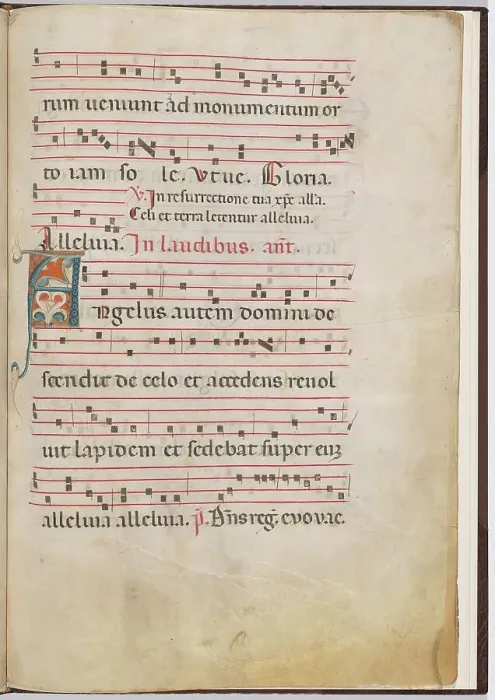 rum ueniunt ad monumentum or
to iam so le. Vt ue. Gloria.
V. In resurrectione tua xp̄e alľa.
Celi et terra letentur alleluia.
Alleluia. In laudibus. ant̄.
Angelus autem domini de
scendit de celo et accedens reuol
uit lapidem et sedebat super euꝫ
alleluia alleluia. p̄. Dn̄s reḡ. evovae.